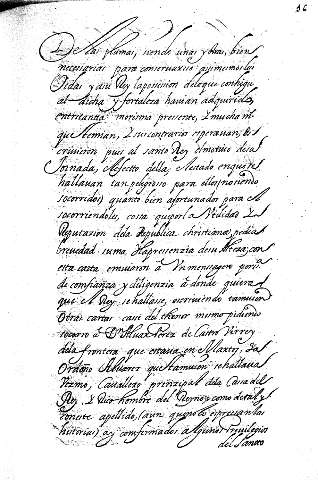 36
De las plumas, siendo unas y otras, bien
necesarias para conservarse asi mismos los
vidas y a su Rey la posesion de lo que consigue
al dicha y fortaleza havian adquirido,
entretanto morisma presente, y mucha m
que temian, y su contrario esperavan; es
crivieron pues al santo Rey el motivo desa
Jornada, el efecto della, el estado en que se
hallavan tan peligroso para ellos (no siendo
socorridos) quanto bien afortunado para el
socorriendoles, cosa que por la Vtilidad y la
Reputazion de la Republica christiana, pedia
brevedad suma, la presenzia de su Alteza; con
esta carta enviaron a Un mensagero persona
de confianza y diligenzia a donde quiera
que el Rey se hallase, escriviendo tambien
otras cartas casi del thenor mismo pidiendo
socorro a Dn Alvar Perez de Castro Virrey
de la frontera que estava en Martos, y a
Ordoño Alvarez que tambien se hallava
Cavallero prinzipal de la Casa del
Rey, y Rico hombre del Reyno, y como de tal y
con este apellido, (aun que no lo espresan las
historias) ay confirmados algunos Privilegios
del Santo